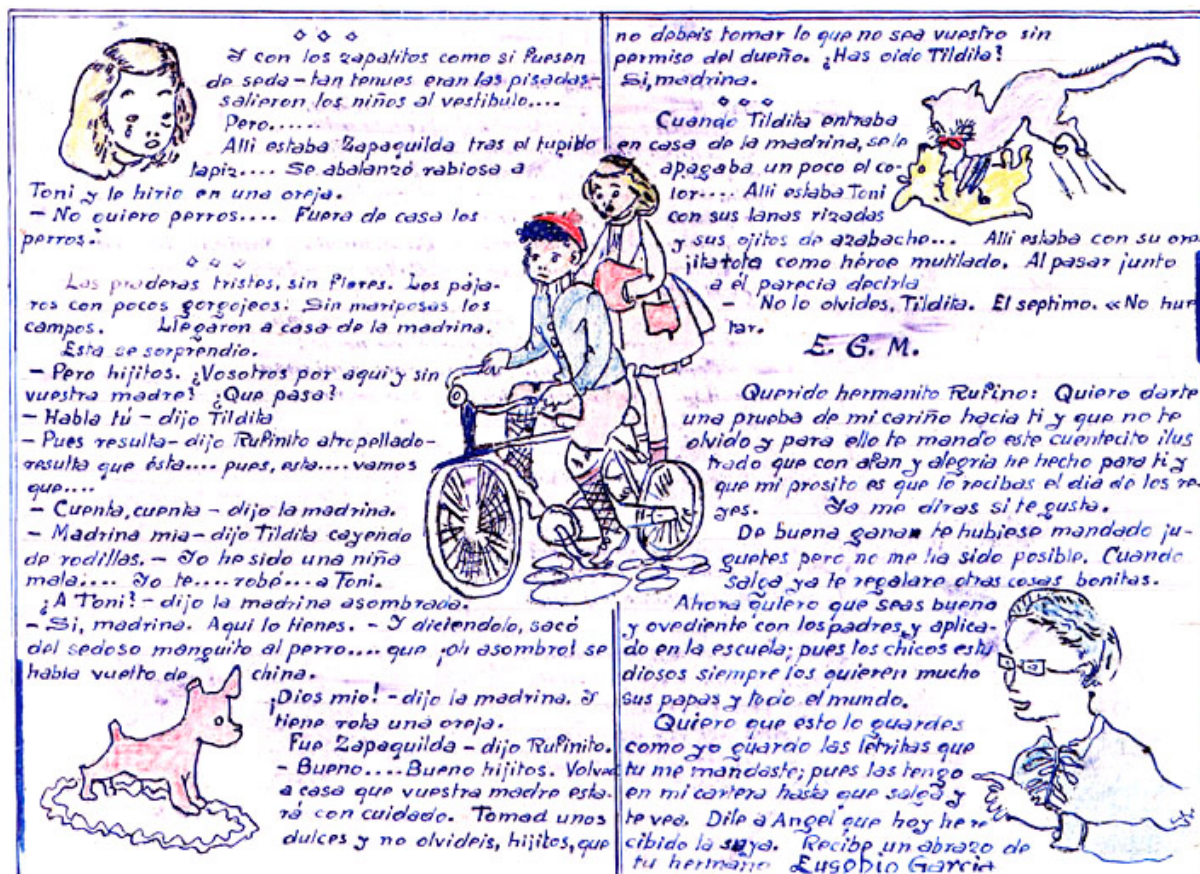 Y con los zapatitos como si fuesen
de seda - tan tenues eran las pisadas -
salieron los niños al vestibulo....
Pero......
Alli estaba Zapaquilda tras el tupido
tapiz.... Se abalanzó rabiosa a
Toni y le hirio en una oreja.
- No quiero perros.... Fuera de casa los
perros.
Las praderas tristes, sin flores. Los pája-
ros con pocos gorgojeos. Sin mariposas los
campos. Llegaron a casa de la madrina.
Esta se sorprendio.
- Pero hijitos. ¿Vosotros por aqui y sin
vuestra madre? ¿Que pasa?
- Habla tú - dijo Tildita
- Pues resulta - dijo Rufinito atropellado -
resulta que ésta.... pues, esta.... vamos
que....
- Cuenta, cuenta - dijo la madrina.
- Madrina mia - dijo Tildita cayendo
de rodillas. - Yo he sido una niña
mala.... Yo te.... robé... a Toni.
¿A Toni? - dijo la madrina asombrada.
- Si, madrina. Aqui lo tienes. - Y diciendolo, sacó
del sedoso manguito al perro.... que ¡oh asombro! se
habia vuelto de china.
¡Dios mio! - dijo la madrina. Y
tiene rota una oreja.
Fue Zapaquilda - dijo Rufinito.
- Bueno.... Bueno hijitos. Volved
a casa que vuestra madre esta-
rá con cuidado. Tomad unos
dulces y no olvideis, hijitos, que
no debeis tomar lo que no sea vuestro sin
permiso del dueño. ¿Has oido Tildita?
Si, madrina.
Cuando Tildita entraba
en casa de la madrina, se le
apagaba un poco el co-
lor.... Alli estaba Toni
con sus lanas rizadas
y sus ojitos de azabache... Alli estaba con su ore
jita rota como héroe mutilado. Al pasar junto
a él parecia decirla
- No lo olvides, Tildita. El septimo. «No hur
tar.
E. G. M.
Querido hermanito Rufino: Quiero darte
una prueba de mi cariño hacia ti y que no te
olvido y para ello te mando este cuentecito ilus
trado que con afan y alegria he hecho para ti y
que mi prosito es que lo recibas el dia de los re-
yes. Ya me diras si te gusta.
De buena gana te hubiese mandado ju-
guetes pero no me ha sido posible. Cuando
salga ya te regalare otras cosas bonitas.
Ahora quiero que seas bueno
y ovediente con los padres, y aplica-
do en la escuela; pues los chicos estu
diosos siempre los quieren mucho
sus papas y todo el mundo.
Quiero que esto lo guardes
como yo guardo las letritas que
tu me mandaste; pues las tengo
en mi cartera hasta que salga y
te vea. Dile a Angel que hoy he re
cibido la suya. Recibe un abrazo de
tu hermano Eugenio Garcia